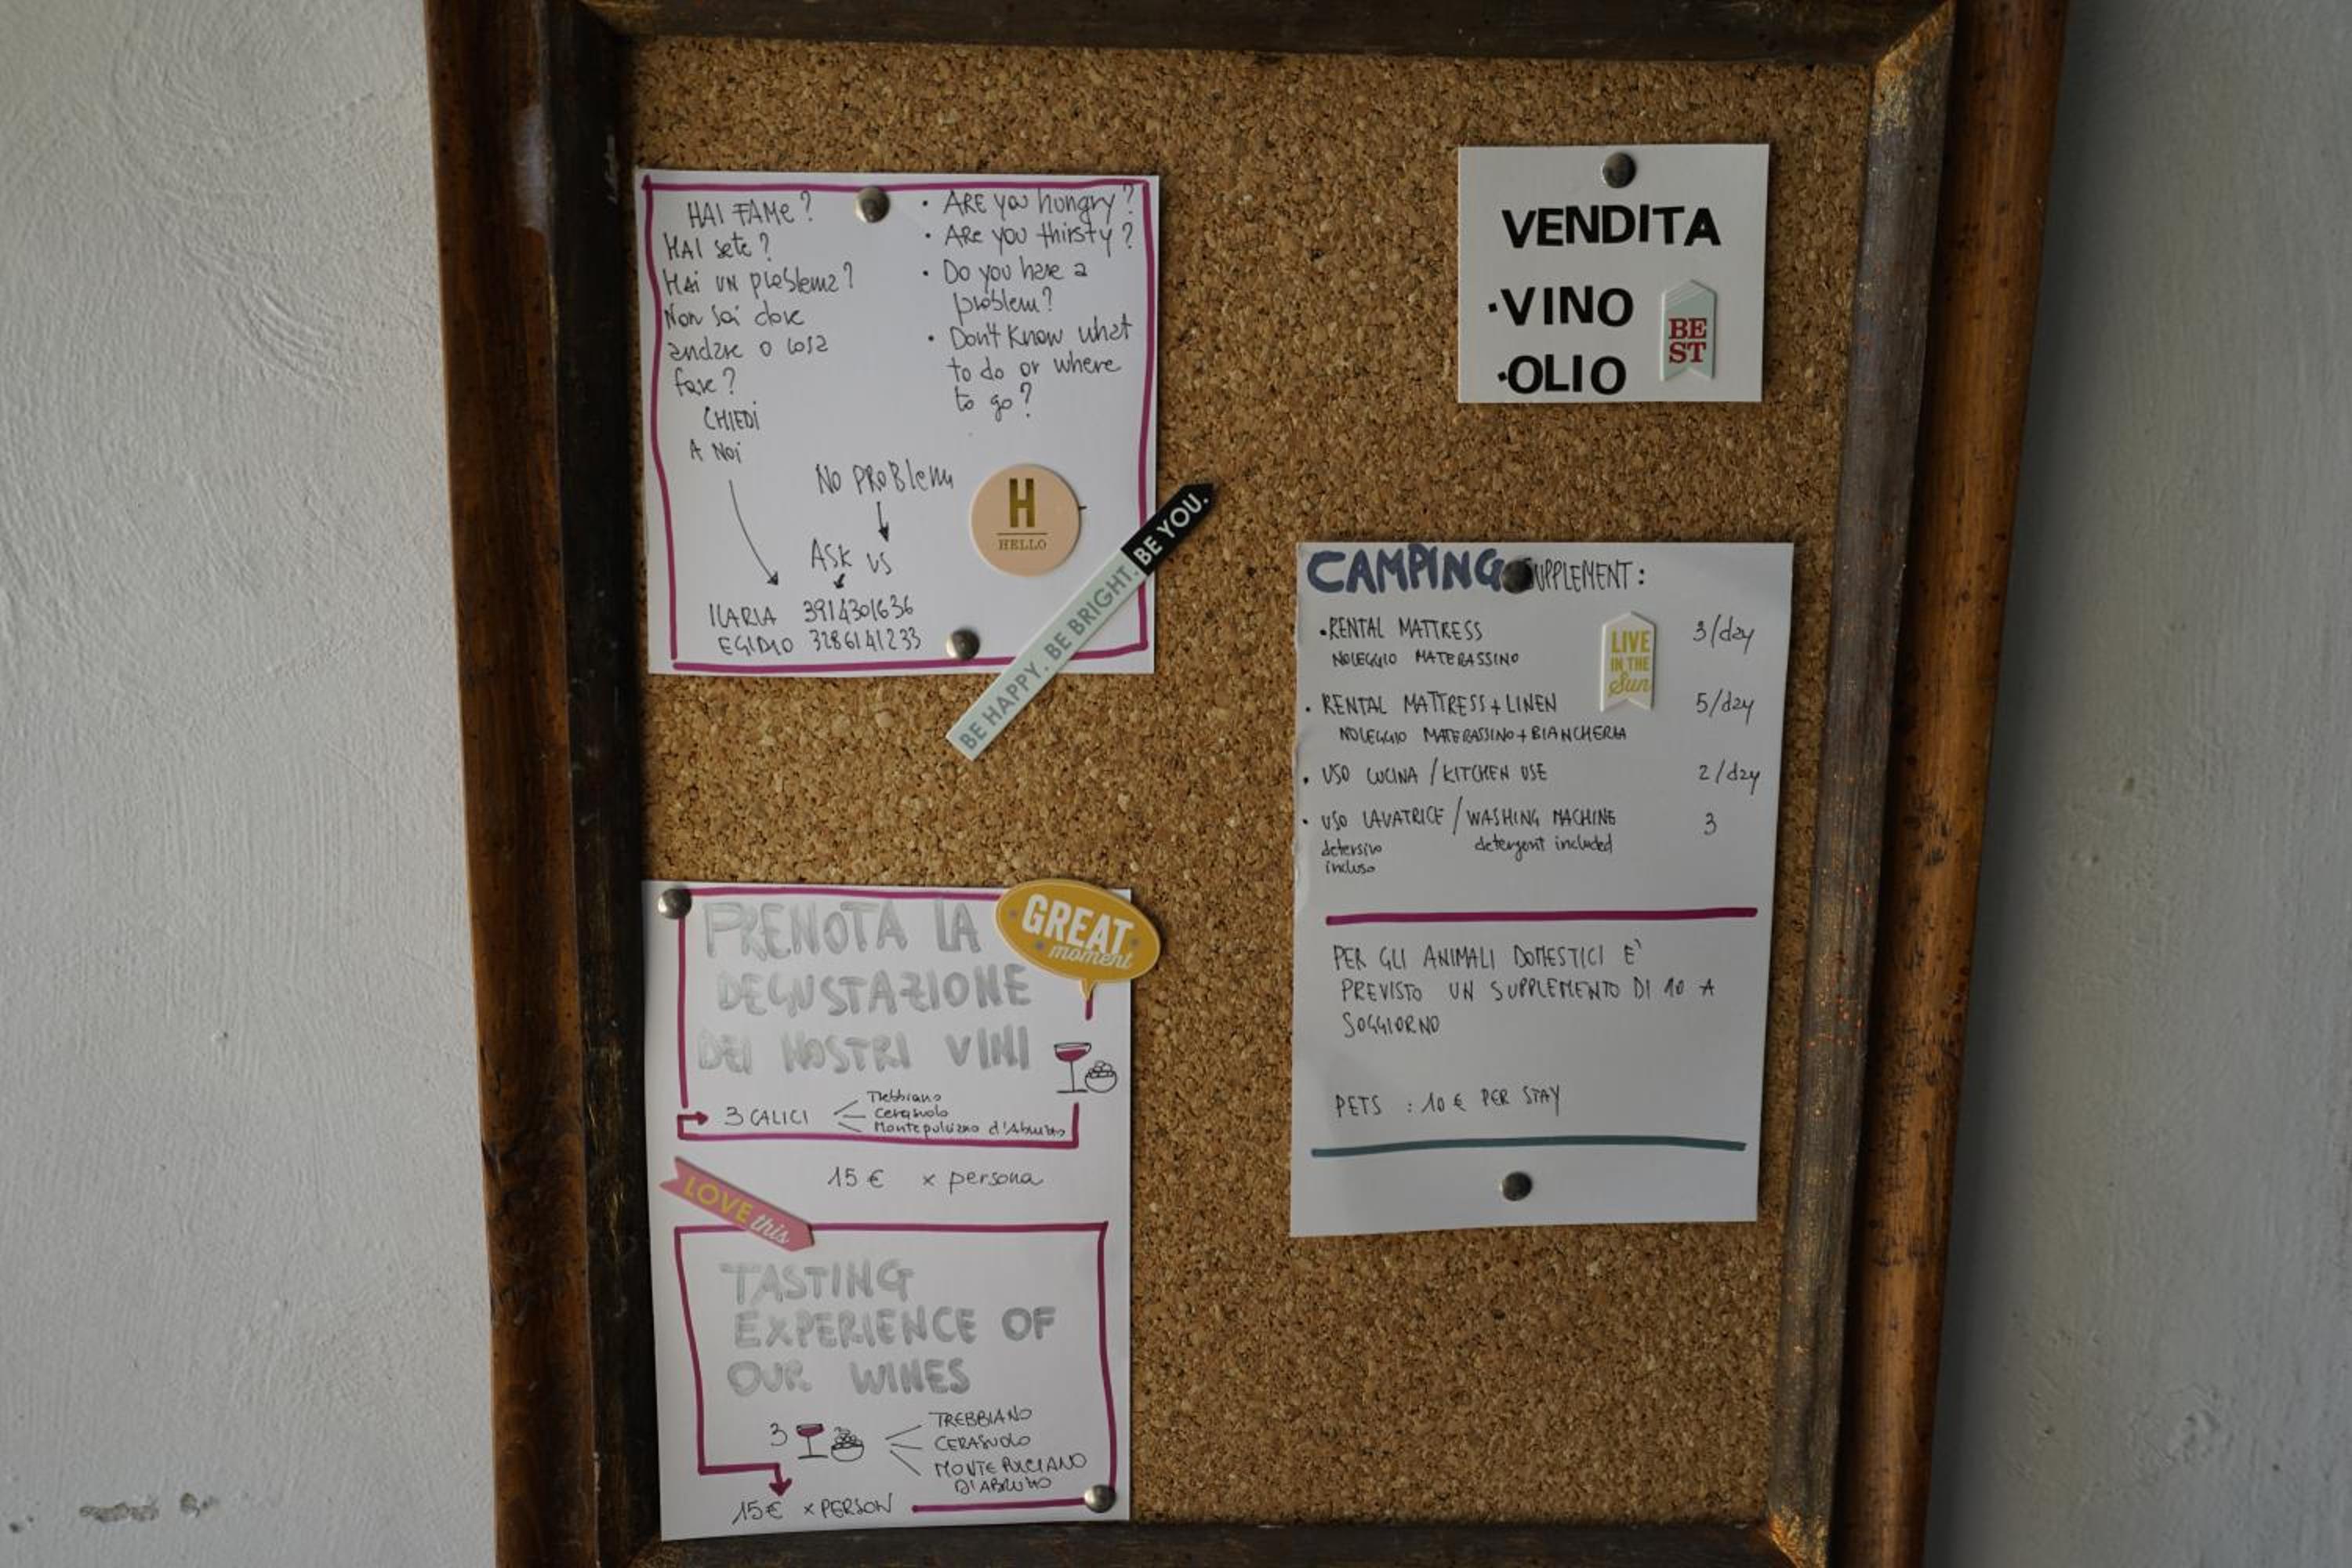 HAI FAME?
HAI sete?
HAi UN problema?
Non sai dove
andare o cosa
fare?
CHIEDI
A NOi
• ARE you hungry?
• ARE you thirsty?
• Do you have a
problem?
• Don't know what
to do or where
to go?
NO PROBlem
ASK US
ILARIA 3914301636
EGIDIO 3286141233
H
HELLO
BE HAPPY. BE BRIGHT. BE YOU.
VENDITA
•VINO
•OLIO
BE
ST
CAMPING SUPPLEMENT:
•RENTAL MATTRESS 3/day
NOLEGGIO MATERASSINO
• RENTAL MATTRESS + LINEN 5/day
NOLEGGIO MATERASSINO + BIANCHERIA
• USO CUCINA / KITCHEN USE 2/day
• USO LAVATRICE / WASHING MACHINE 3
detersivo detergent included
incluso
LIVE
IN THE
Sun
PER GLI ANIMALI DOMESTICI E'
PREVISTO UN SUPPLEMENTO DI 10 A
SOGGIORNO
PETS : 10 € PER STAY
PRENOTA LA
DEGUSTAZIONE
DEI NOSTRI VINI
GREAT
moment
3 CALICI
Trebbiano
Cerasuolo
Montepulciano d'Abruzzo
15 € x persona
LOVE this
TASTING
EXPERIENCE OF
OUR WINES
3
TREBBIANO
CERASUOLO
MONTEPULCIANO
D'ABRUZZO
15€ x PERSON